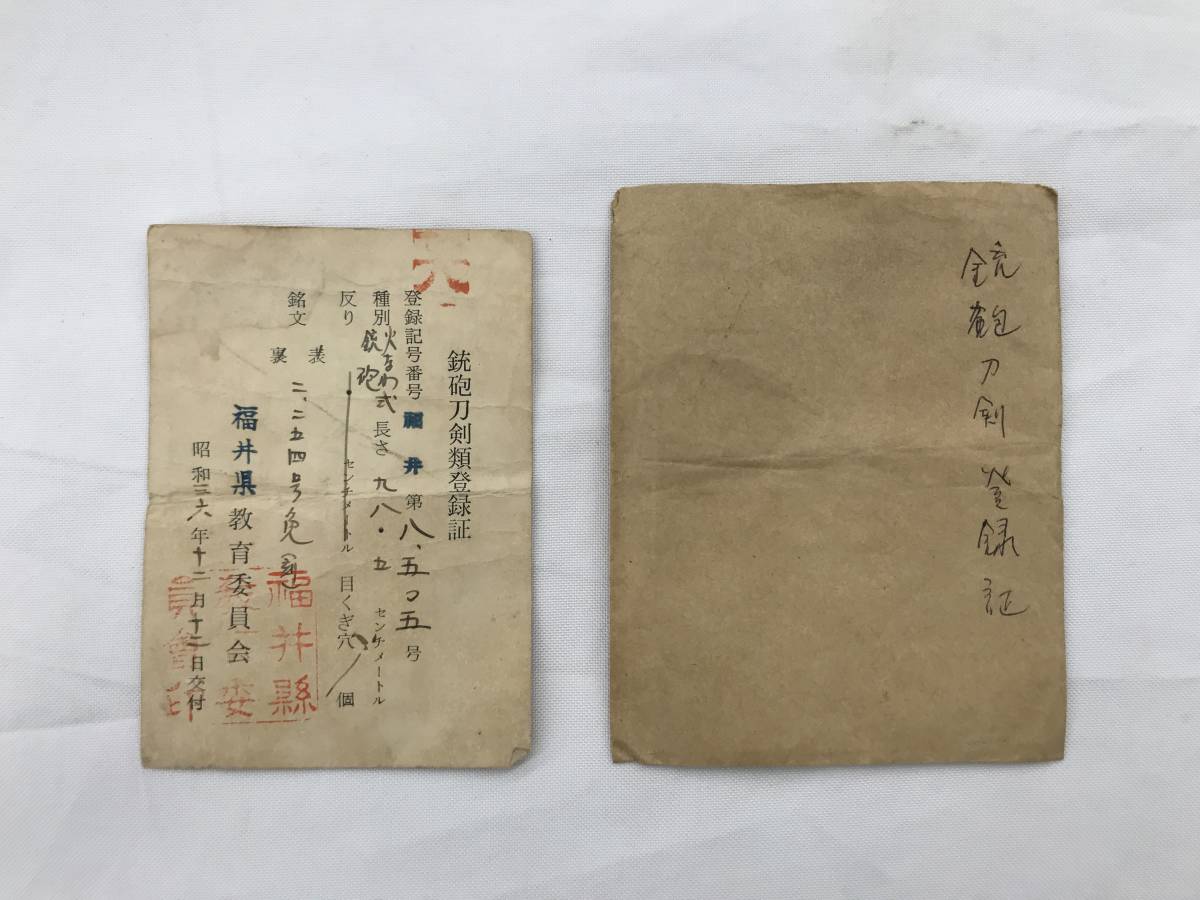 銃砲刀剣類登録証
登録記号番号 福井 第八、五〇五号
種別 火なわ式銃砲 長さ 九八・五 センチメートル
反り センチメートル 目くぎ穴 個
銘文 表 二、二五四号免
裏
福井県教育委員会
昭和三六年十二月十二日交付
福井縣
教育委
員會印
銃砲刀剣登録証